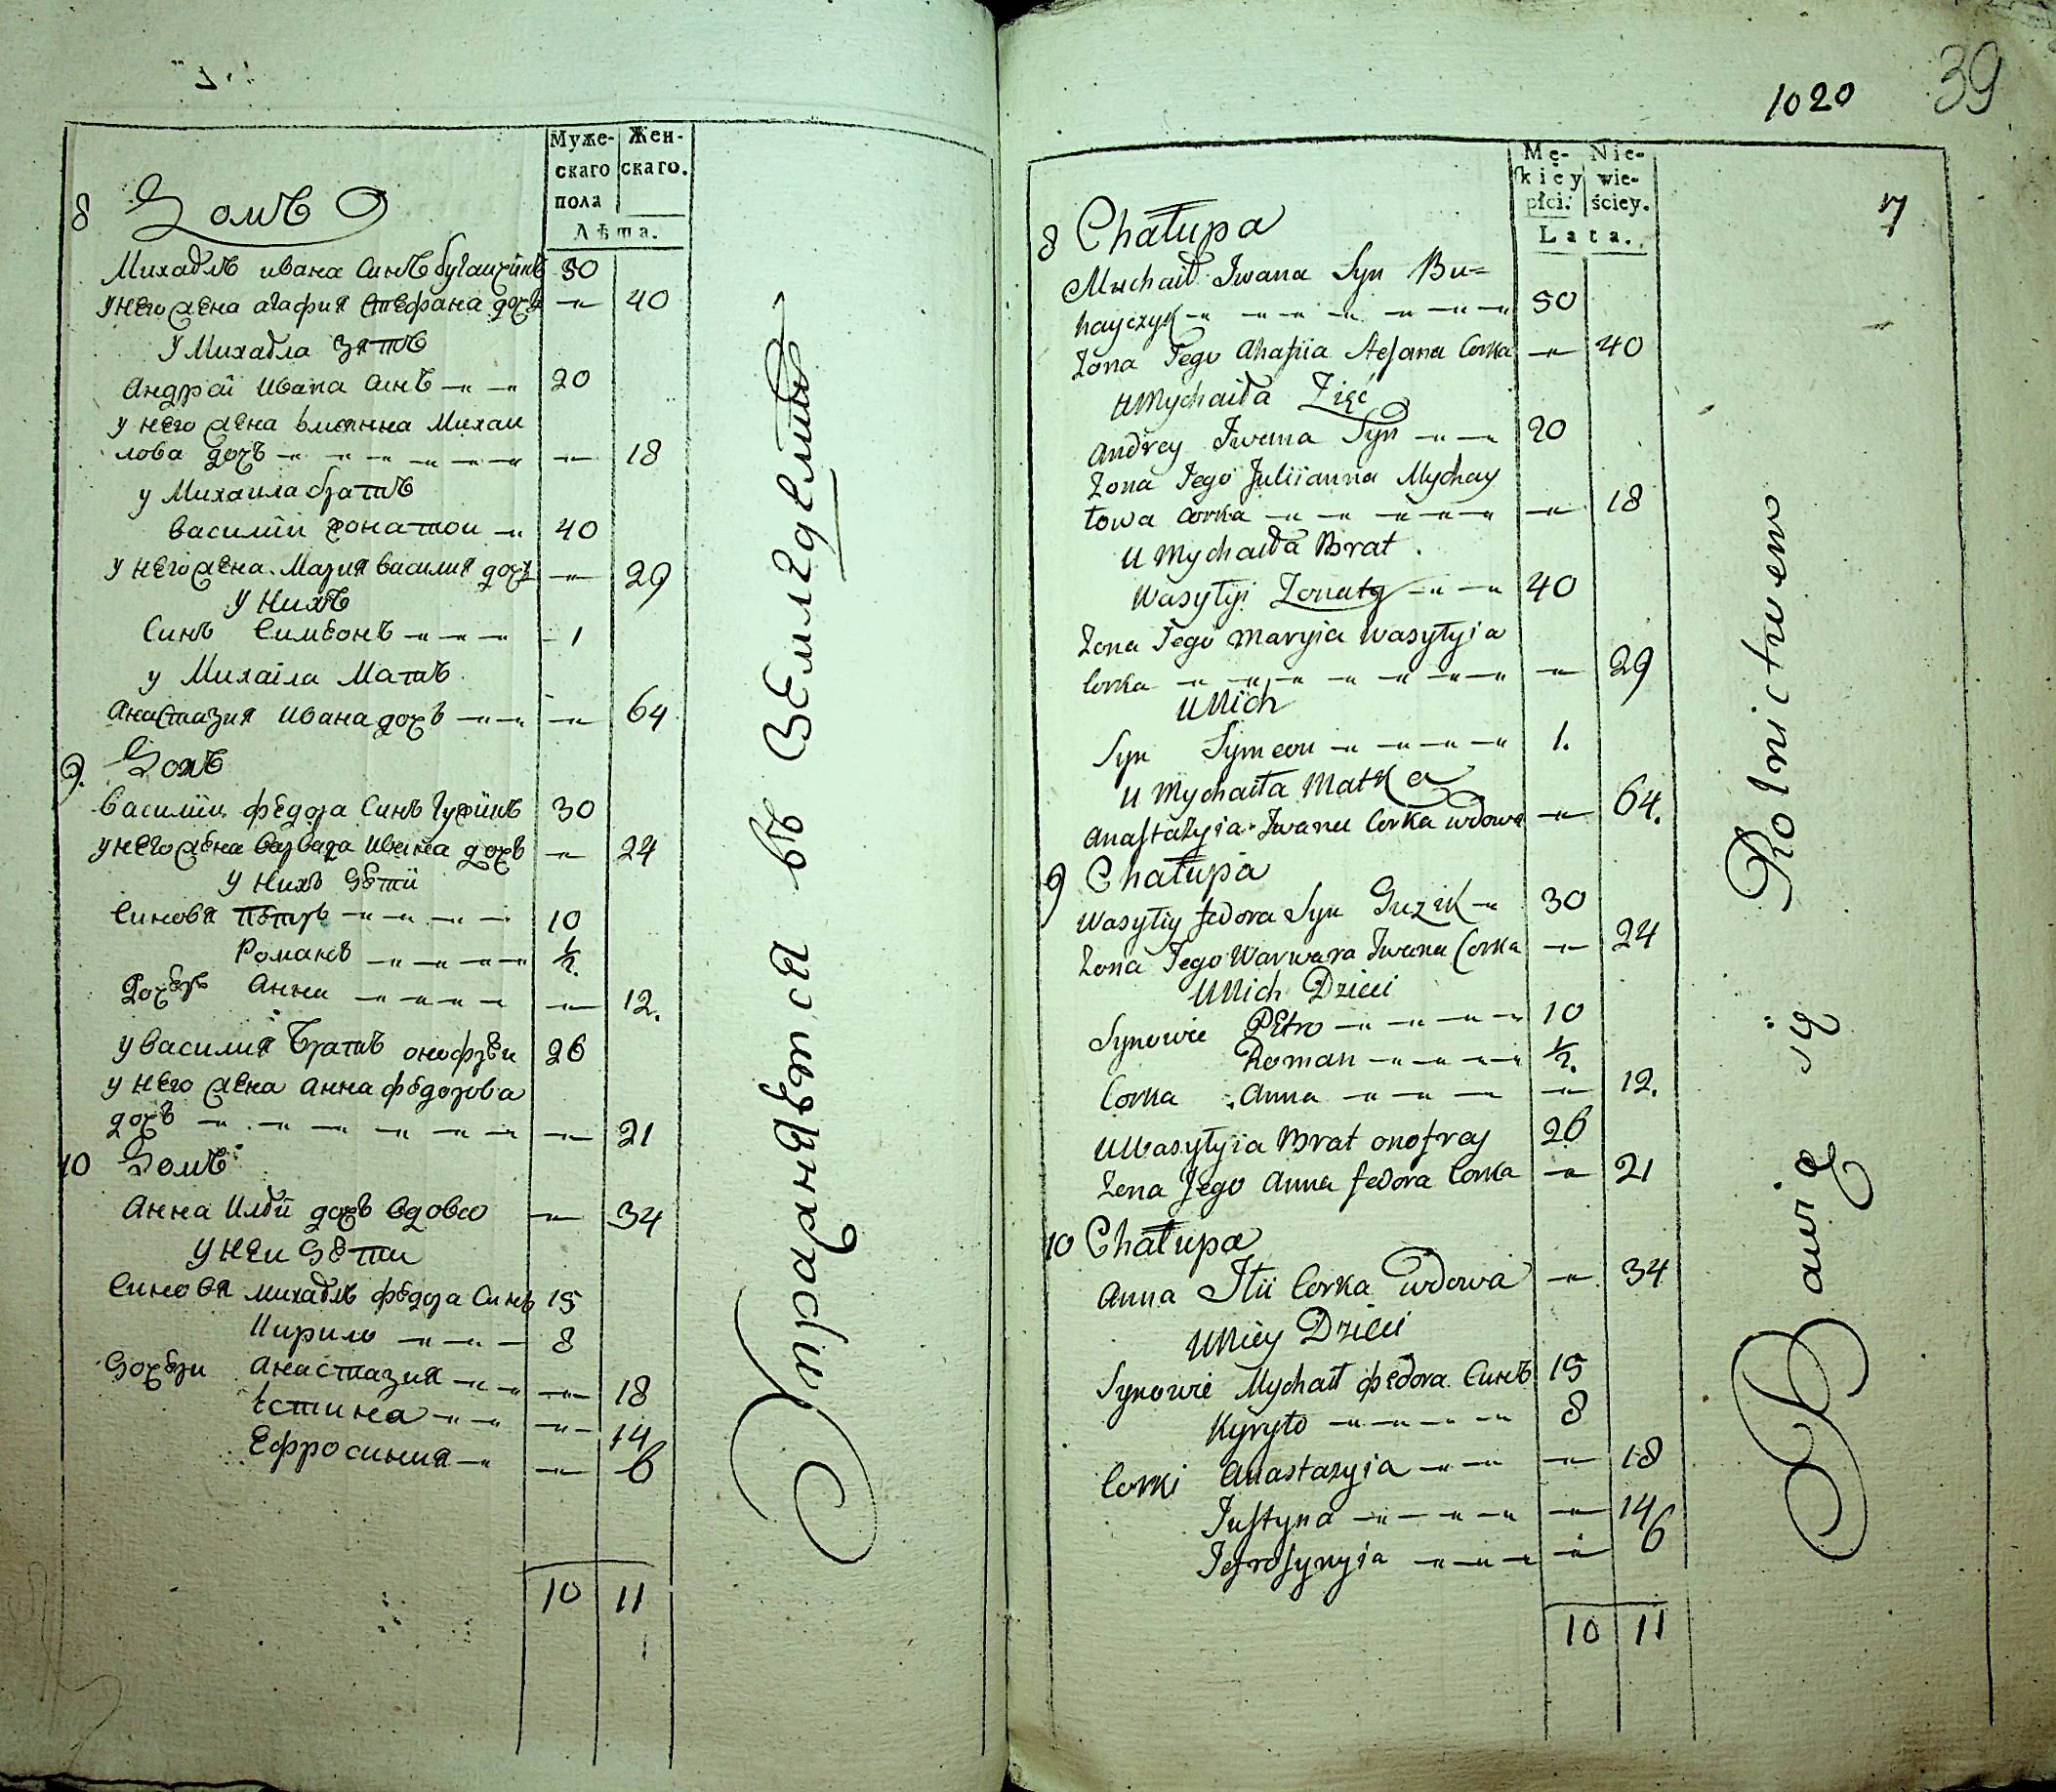 Муже-
скаго
пола
Жен-
скаго.
Лѣта.
8 Домъ
Михаилъ ивана Синъ бугайчикъ 50
У него жена агафия Стефана дочъ 40
У Михаила Зять
Андрей Ивана Синъ 20
у него жена Михаи
лова дочь 18
у Михаила братъ
василий жонатои 40
У него жена Мария василия дочъ 29
У Нихъ
Синъ Симеонъ 1
у Михаила Мать
Анастазия Ивана дочъ 64
9. Домъ
василий федора Синъ Гузикъ 30
у него жена варвара Ивана дочъ 24
У Нихъ дети
Синовя Петръ 10
Романъ 1/2.
Дочерь Анна 12.
у василия Братъ онофреи 26
у него жена Анна федорова
дочъ 21
10 Домъ
Анна Илии дочъ вдова 34
У Неи дети
Синовя михаилъ федора Синъ 15
Кирило 8
дочери Анастазия 18
Естина 14
Ефросиния 6
10 11
Упражняются въ Земледелии
39
1020
7
Mę-
skiey
płci.
Nie-
wie-
ściey.
Lata.
8 Chałupa
Mychaił Iwana Syn Bu=
hayczyk 50
Zona Jego Ahafiia Stefana Corka 40
U Mychaiła Zięć
Andrey Iwana Syn 20
Zona Jego Juliianna Mychay
łowa Corka 18
U Mychaiła Brat.
Wasylyi Zonaty 40
Zona Jego Maryia Wasylyia
Corka 29
U Nich
Syn Symeon 1.
U Mychaiła Matka
Anastazyia Iwana Corka wdowa 64.
9 Chałupa
Wasyliy fedora Syn Guzik 30
Zona Jego Warwara Iwana Corka 24
U Nich Dzieci
Synowie Petro 10
Roman 1/2.
Corka Anna 12.
U Wasylyia Brat onofray 26
Zona Jego Anna fedora Corka 21
10 Chałupa
Anna Ilii Corka wdowa 34
U Niey Dzieci
Synowie Mychaił федora Синъ 15
Kyryło 8
Corki Anastazyia 18
Justyna 14
Jefrosynyia 6
10 11
Bawią się Rolnictwem